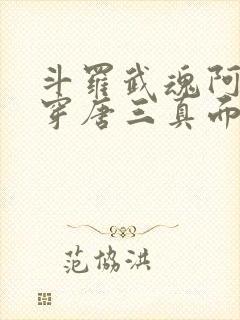 斗羅武魂阿
穿唐三真而
范協洪